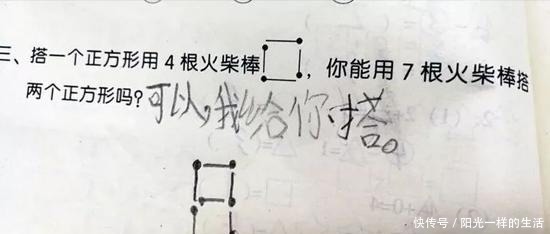 三、搭一个正方形用4根火柴棒，你能用7根火柴棒搭
两个正方形吗？可以，我给你搭。
快传号/阳光一样的生活